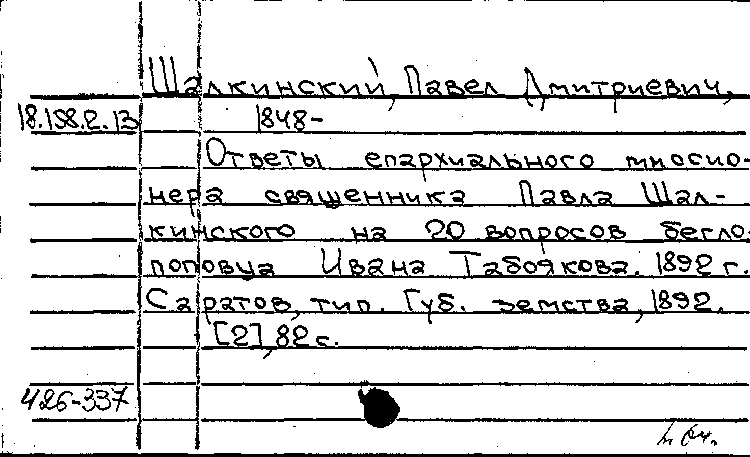 Шалкинский, Павел Дмитриевич,
18.158.2.13 1848-
Ответы епархиального миссио-
нера священника Павла Шал-
кинского на 20 вопросов бегло-
поповца Ивана Табоякова. 1892 г.
Саратов, тип. Губ. земства, 1892.
[2], 82 с.
426-337